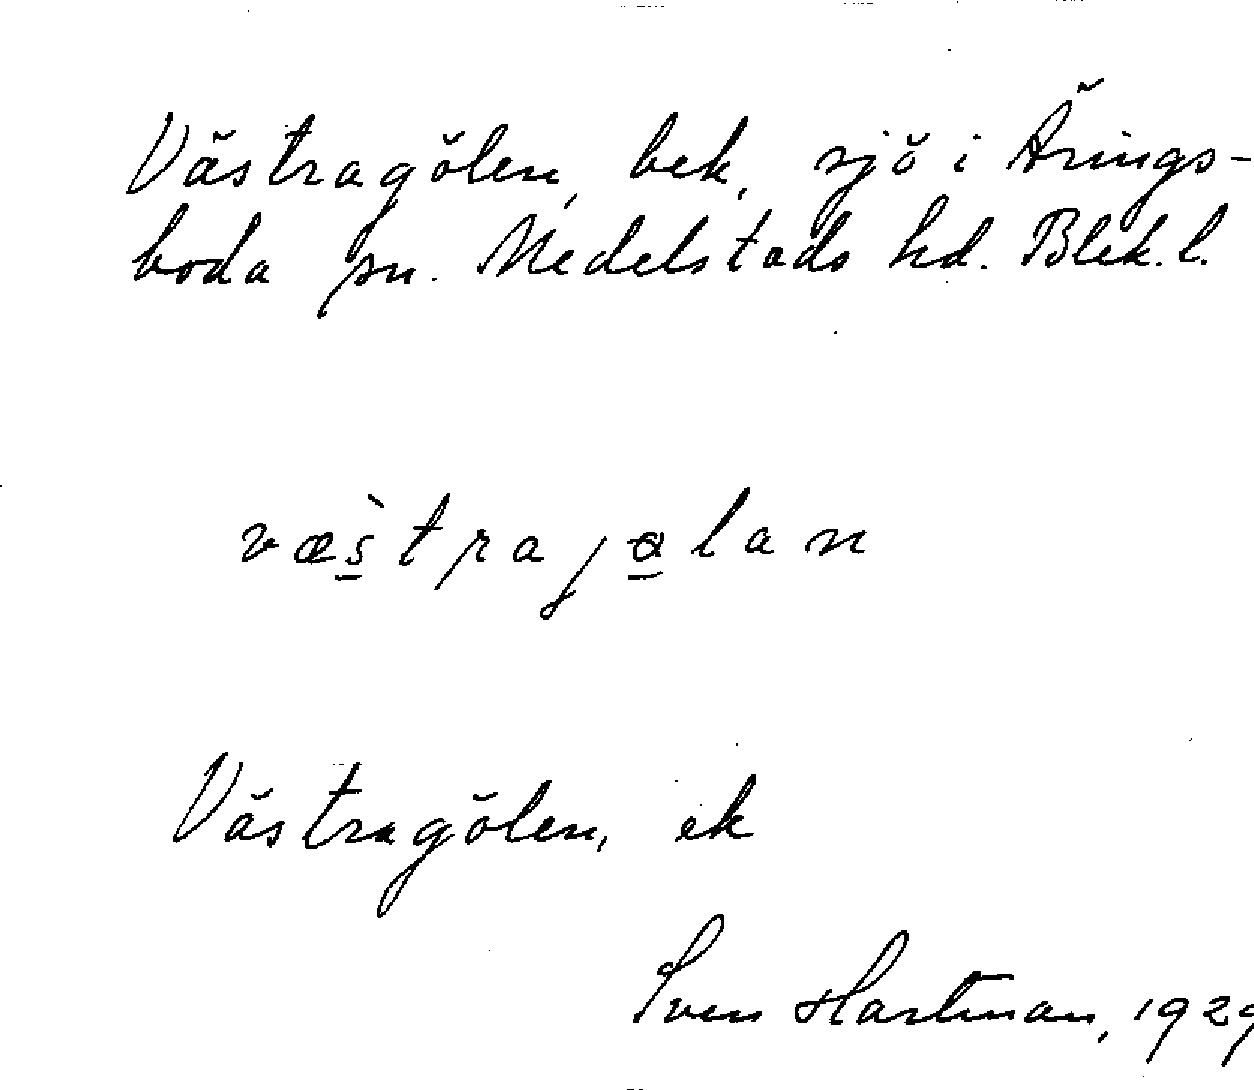 Västragölen, bek, sjö i Ärings-
boda sn. Medelstads hd. Blek.l.
væs̀trajɵlan
Västragölen, ek
Sven Hartman, 1929